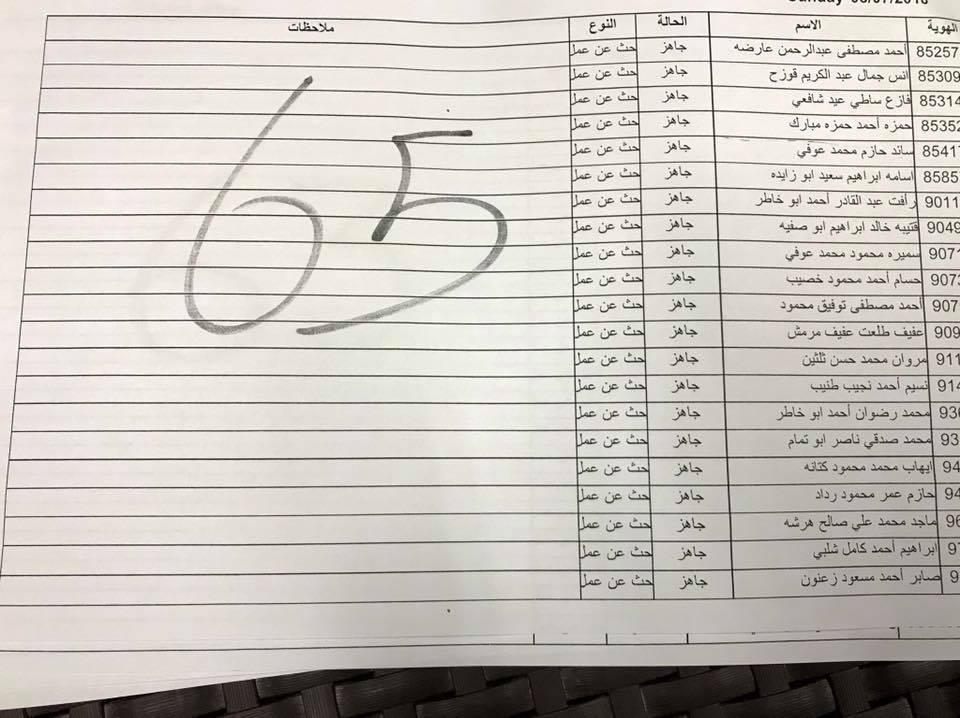 الهوية الاسم الحالة النوع ملاحظات
85257 أحمد مصطفى عبدالرحمن عارضه جاهز حث عن عمل
85309 انس جمال عبد الكريم قوزح جاهز حث عن عمل
85314 فازع ساطي عيد شافعي جاهز حث عن عمل
85352 حمزه أحمد حمزه مبارك جاهز حث عن عمل
85417 ساند حازم محمد عوفي جاهز حث عن عمل
85857 اسامه ابراهيم سعيد ابو زايده جاهز حث عن عمل
9011 رأفت عبد القادر أحمد ابو خاطر جاهز حث عن عمل
9049 قتيبه خالد ابراهيم ابو صفيه جاهز حث عن عمل
9071 سميره محمود محمد عوفي جاهز حث عن عمل
9073 حسام أحمد محمود خصيب جاهز حث عن عمل
907 أحمد مصطفى توفيق محمود جاهز حث عن عمل
909 عفيف طلعت عفيف مرمش جاهز حث عن عمل
911 مروان محمد حسن ثلثين جاهز حث عن عمل
914 نسيم أحمد نجيب طنيب جاهز حث عن عمل
936 محمد رضوان أحمد ابو خاطر جاهز حث عن عمل
93 محمد صدقي ناصر ابو تمام جاهز حث عن عمل
94 ايهاب محمد محمود كتانه جاهز حث عن عمل
94 حازم عمر محمود رداد جاهز حث عن عمل
96 ماجد محمد علي صالح هرشه جاهز حث عن عمل
97 ابراهيم أحمد كامل شلبي جاهز حث عن عمل
9 صابر أحمد مسعود زعنون جاهز حث عن عمل
65